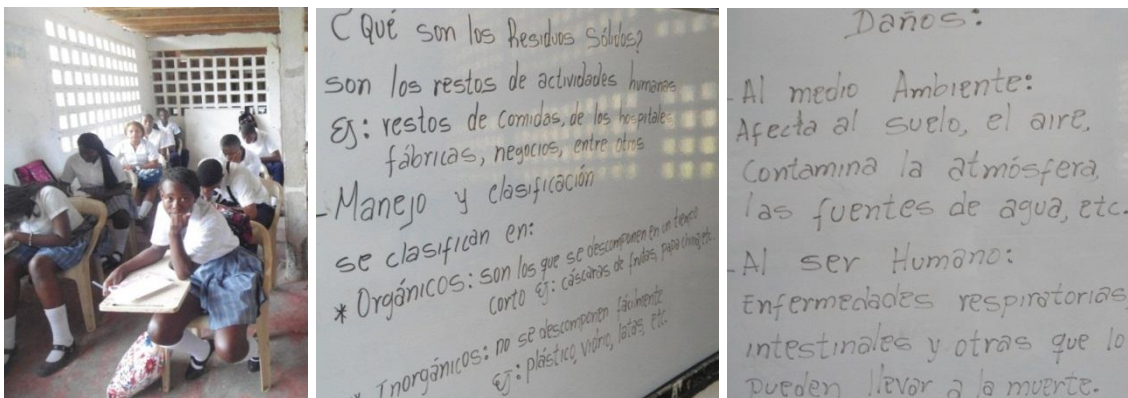 ¿Qué son los Residuos Sólidos?
son los restos de actividades humanas
Ej: restos de comidas, de los hospitales
fábricas, negocios, entre otros
- Manejo y clasificación
se clasifican en:
* Orgánicos: son los que se descomponen en un tiempo
corto ej: cáscaras de frutas, papa china, etc.
* Inorgánicos: no se descomponen fácilmente
ej: plástico, vidrio, latas, etc.
Daños:
- Al medio Ambiente:
Afecta al suelo, el aire,
Contamina la atmósfera,
las fuentes de agua, etc.
- Al ser Humano:
Enfermedades respiratorias,
intestinales y otras que lo
pueden llevar a la muerte.